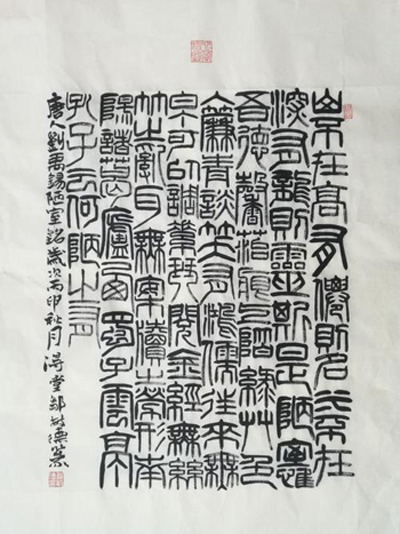 山不在高有僊則名水不在
深有龍則靈斯是陋室惟
吾德馨苔痕上階綠艸色
入簾青談笑有鴻儒往來無
白丁可以調素琴閱金經無絲
竹之亂耳無案牘之勞形南
陽諸葛廬西蜀子雲亭
孔子云何陋之有
唐人劉禹錫陋室銘歲次丙申秋月淂堂鄒德篆